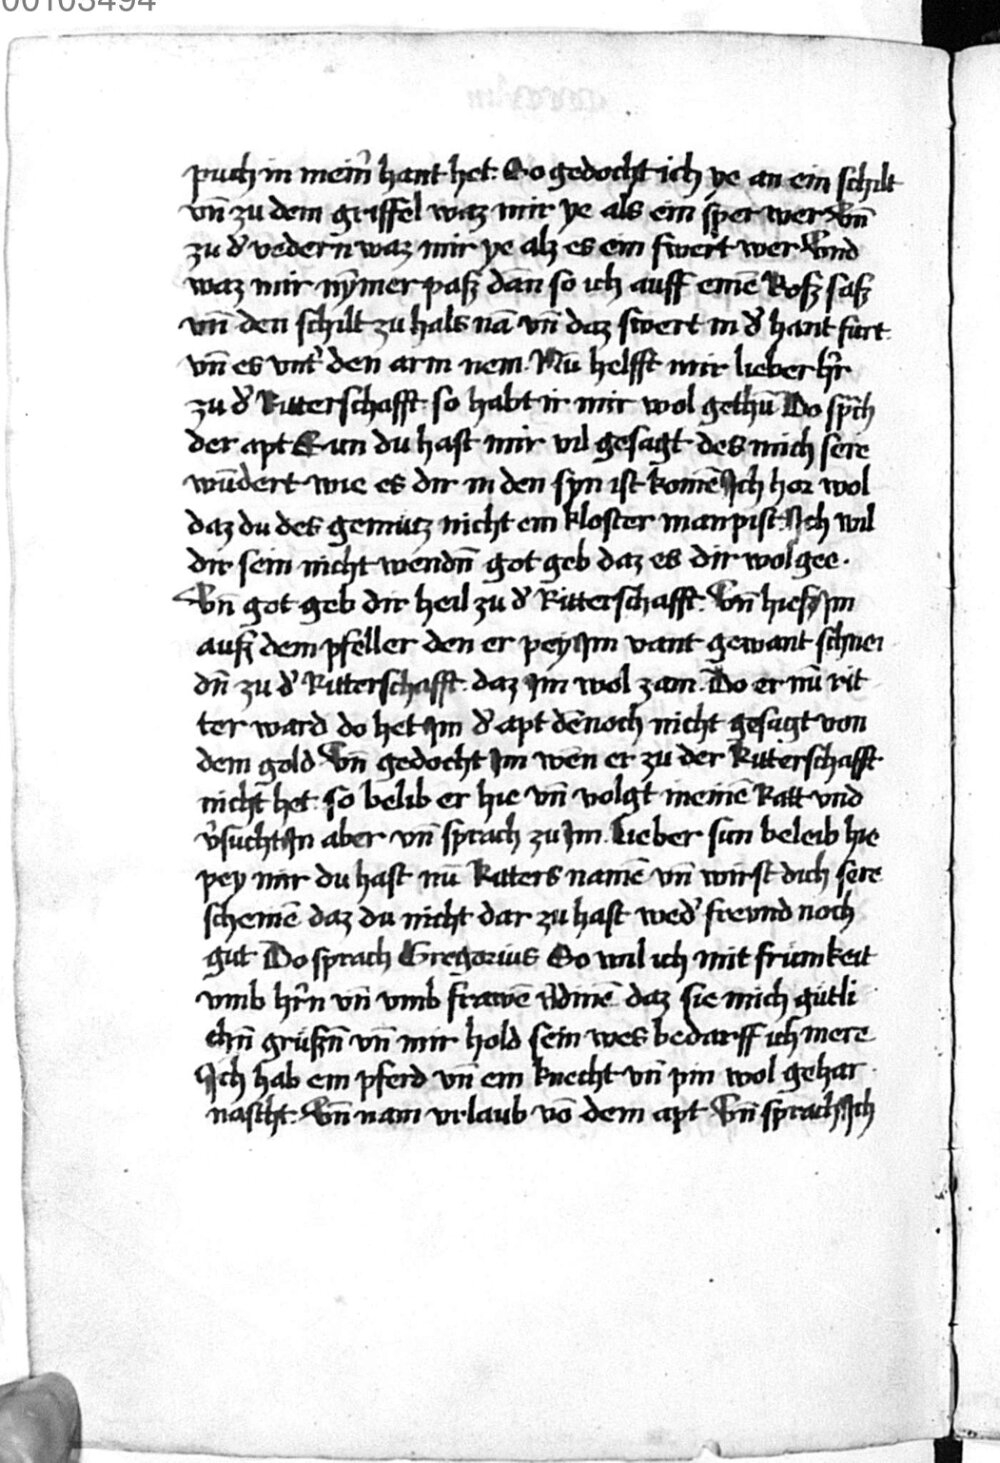 00103494
puch in mein̄ hant het. So gedocht ich ye an ein schilt
vn̄ zu dem griffel waz mir ye als ein sper wer Vn̄
zu d' vedern waz mir ye alz es ein swert wer Vnd
waz mir nȳmer paß dan̄ so ich auff einē Roß saß
vn̄ den schilt zu hals nā vn̄ daz swert in d' hant furt
vn̄ es vnt' den arm nem. Nū helfft mir lieber h'r
zu d' Ritterschafft so habt ir mir wol gethū Do sp̄ch
der apt Sun du hast mir vil gesagt des mich sere
wūdert wie es dir in den syn ist komē Ich hor wol
daz du des gemutz nicht ein kloster man pist Ich wil
dir sein nicht wendn̄ got geb daz es dir wol gee.
Vn̄ got geb dir heil zu d' Ritterschafft. Vn̄ hieß Im
auß dem pfeller den er pey Im vant gewant schnei
dn̄ zu d' Ritterschafft. daz Im wol zam. Do er nū rit
ter ward do het Im d' apt dēnoch nicht gesagt von
dem gold Vn̄ gedocht Im wen er zu der Ritterschafft
nicht het. so belib er hie vn̄ volgt meinē Ratt vnd
v'sucht In aber vn̄ sprach zu Im. Lieber sun beleib hie
pey mir du hast nū Ritters namē vn̄ wirst dich sere
schemē daz du nicht dar zu hast wed' frevnd noch
gut Do sprach Gregorius So wil ich mit frumkeit
vmb h'rn vn̄ vmb frawē v'dinē daz sie mich gutli
chn̄ grußn̄ vn̄ mir hold sein wes bedarff ich mere
Ich hab ein pferd vn̄ ein knecht vn̄ pin wol gehar
nascht. Vn̄ nam vrlaub vō dem apt Vn̄ sprach Ich